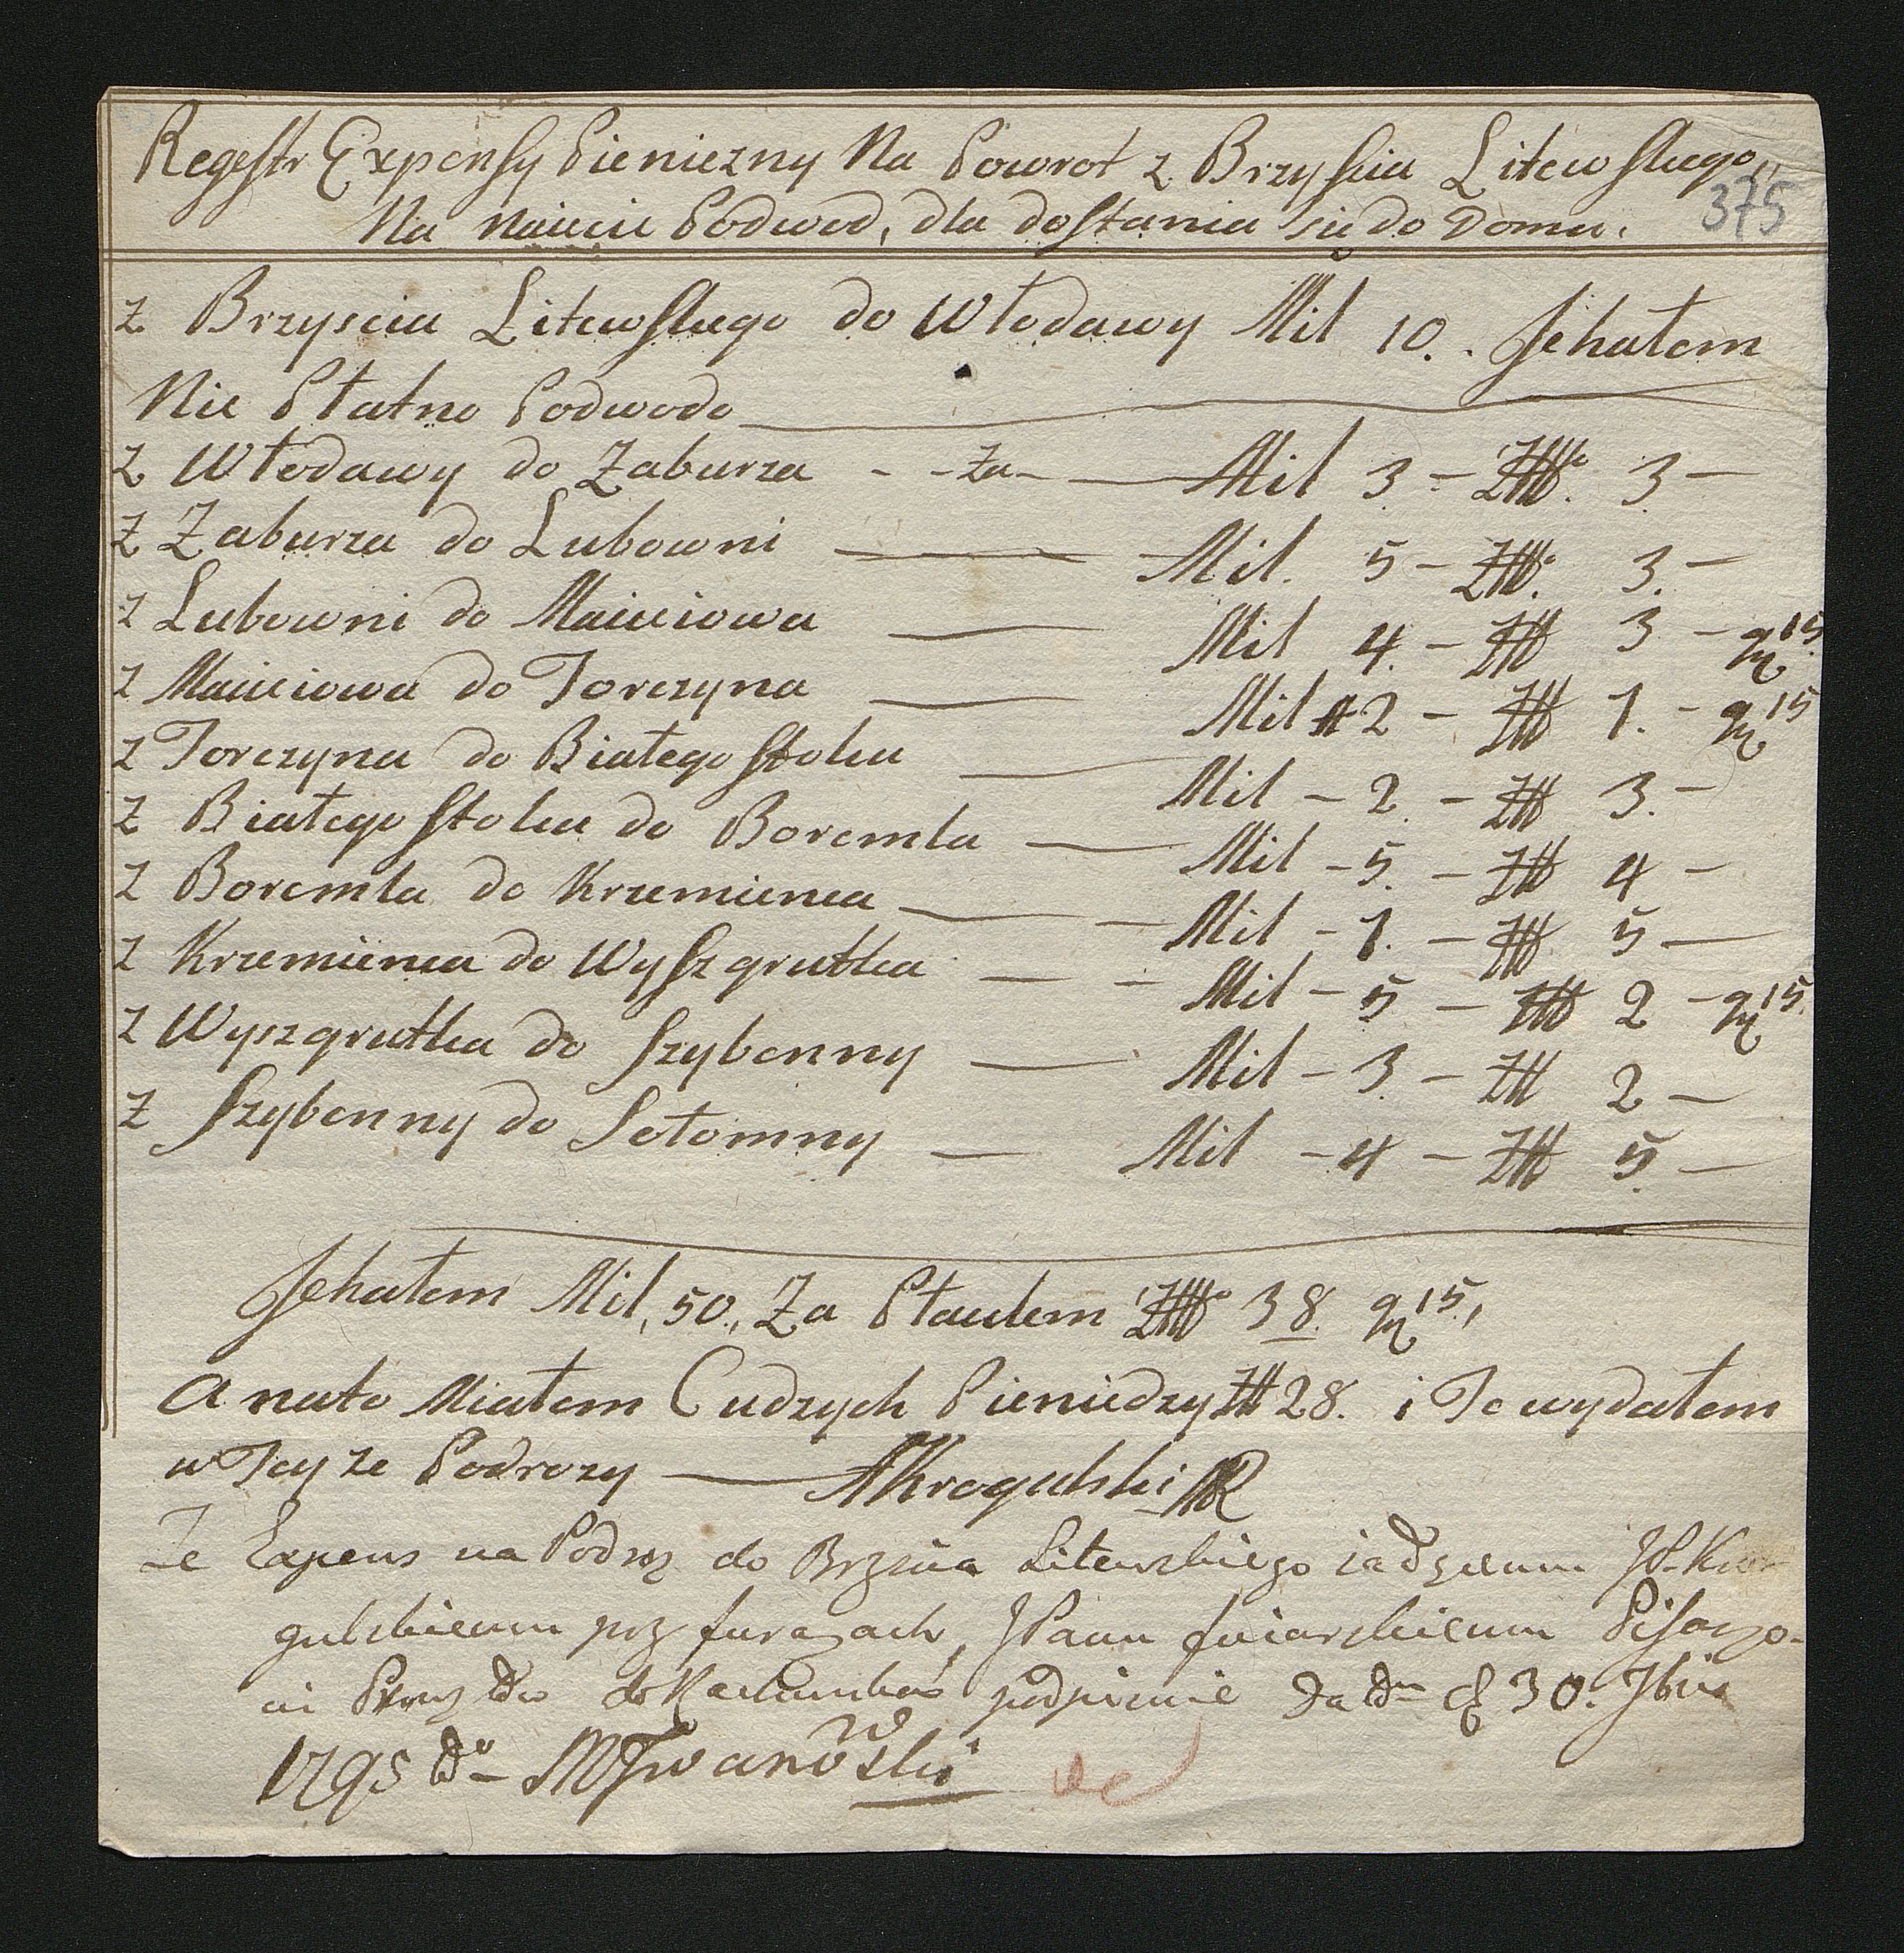 Regestr Expensy Pieniezny Na Powrot z Brzyscia Litewskego,,
Na naięcie Podwod, dla dostania się do Domu.
375
z Brzyscia Litewskego do Włodawy Mil 10. Jehałem
Nie Płatno Podwodo
z Włodawy do Zaburza - - za - Mil 3 - Złł. 3 -
z Zaburza do Lubowni Mil. 5 - Złł. 3. -
z Lubowni do Maiieiowa Mil 4. - Złł 3 - gr 15.
z Maiieiowa do Torczyna Mil 2 - Złł 1. - gr 15
z Torczyna do Białegostoka Mil - 2. - Złł 3. -
z Białegostoka do Boremla Mil - 5. - Złł 4 -
z Boremla do Krzemienca Mil - 7. - Złł 5 -
z Krzemienca do Wyszgrutka Mil - 5 - Złł 2 - gr 15.
z Wyszgrutka do Szybenny Mil - 3. - Złł 2 -
z Szybenny do Sołomny Mil - 4 - Złł 5. -
Jehałem Mil, 50., Za Płaciłem Złł 38. gr 15,
A nato Miałem Cudzych Pieniedzy Złł 28. i Te wydałem
w Teyze Podrozy AKrogulski
Ze Expens na Podroz do Brzscia Litewskiego iadącemu JP. Kro
gulskiemu prz furazach, JPanu Pisarzo-
wi do podpisuie 30. 7bris
1795 MIwanowski